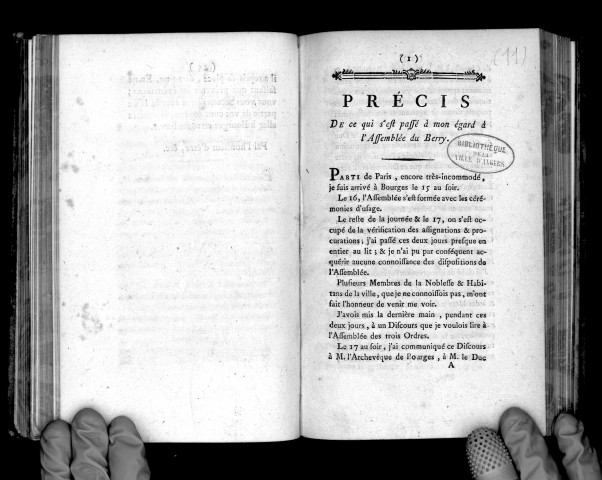 (1)
(11)
PRÉCIS
DE ce qui s'est passé à mon égard à
l'Assemblée du Berry.
BIBLIOTHÈQUE
DE LA
VILLE D'ANGERS
PARTI de Paris, encore très-incommodé,
je suis arrivé à Bourges le 15 au soir.
Le 16, l'Assemblée s'est formée avec les céré-
monies d'usage.
Le reste de la journée & le 17, on s'est oc-
cupé de la vérification des assignations & pro-
curations; j'ai passé ces deux jours presque en
entier au lit; & je n'ai pu par conséquent ac-
quérir aucune connoissance des dispositions de
l'Assemblée.
Plusieurs Membres de la Noblesse & Habi-
tans de la ville, que je ne connoissois pas, m'ont
fait l'honneur de venir me voir.
J'avois mis la dernière main, pendant ces
deux jours, à un Discours que je voulois lire à
l'Assemblée des trois Ordres.
Le 17 au soir, j'ai communiqué ce Discours
à M. l'Archevêque de Bourges, à M. le Duc
A